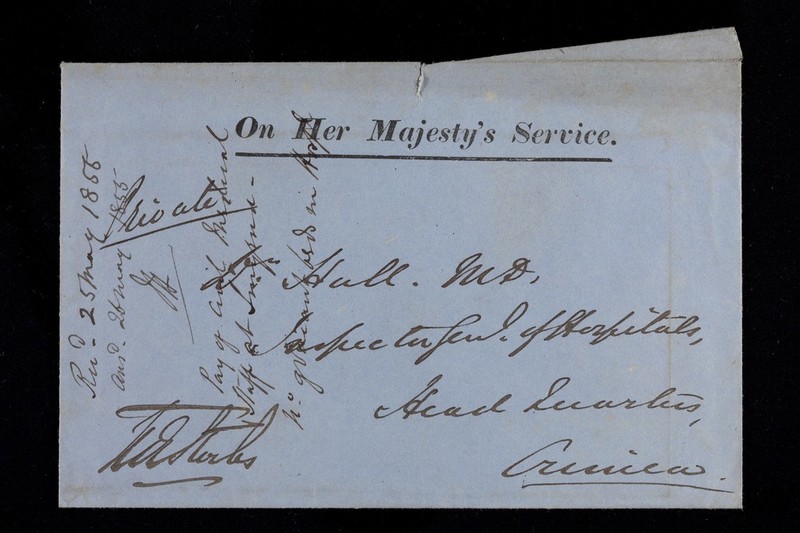 On Her Majesty's Service.
Private
Hall. M.D.
Inspector Genl. of Hospitals,
Head Quarters,
Crimea.
Recd. 25 May 1855
Ansd. 26 May 1855
Pay of Civil Medical
Staff at Smyrna -
No. of vacant beds in